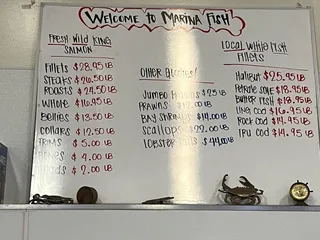 WELCOME TO MARINA FISH
FRESH WILD KING
SALMON
FILLETS $28.95 LB
STEAKS $26.50 LB
ROASTS $24.50 LB
WHOLE $16.95 LB
BELLIES $13.50 LB
COLLARS $12.50 LB
TRIMS $5.00 LB
$4.00 LB
$2.00 LB
OTHER
JUMBO LB
PRAWNS LB
BAY SHRIMP $19.00 LB
SCALLOPS $22.00 LB
LOBSTER $44.00 LB
LOCAL WHITE FISH
FILLETS
HALIBUT $25.95 LB
PETRALE SOLE $18.95 LB
BUTTER FISH $18.95 LB
LING COD $16.95 LB
ROCK COD $14.95 LB
TRU COD $14.95 LB